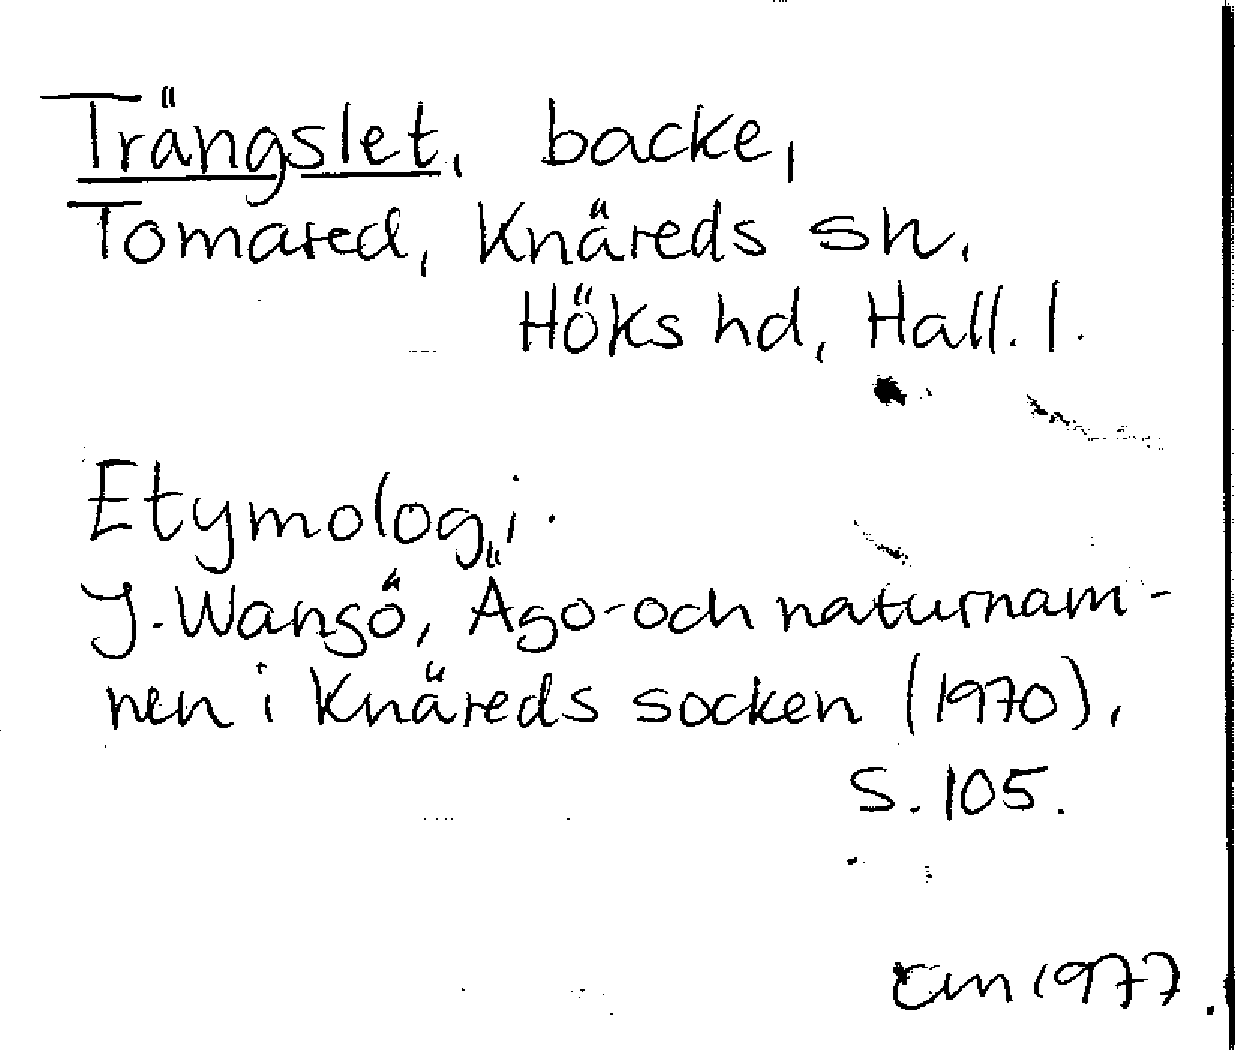 Trängslet, backe,
Tomared, Knäreds sn,
Höks hd, Hall. l.
Etymologi.
J. Wangö, Ägo- och naturnam-
nen i Knäreds socken (1970),
S. 105.
1977.